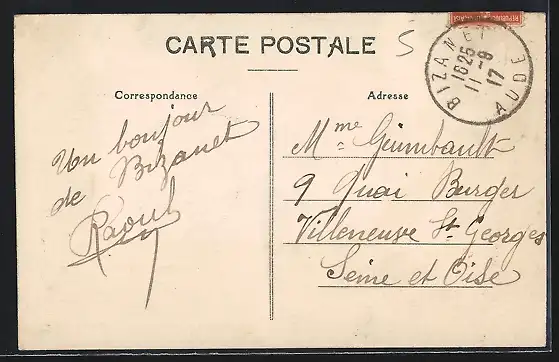 CARTE POSTALE
5
BIZANET
1625
11-9
17
AUDE
Correspondance
Adresse
Un bonjour
de Bizanet
Raoul
Mme Guimbault
9 Quai Burger
Villeneuve St Georges
Seine et Oise